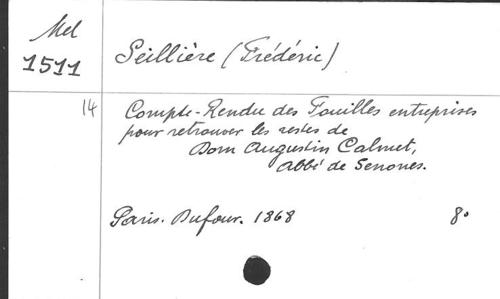 Mel
1511
Seillière (Frédéric)
14
Compte-Rendu des Fouilles entreprises
pour retrouver les restes de
Dom Augustin Calmet,
Abbé de Senones.
Paris. Dufour. 1868
8°